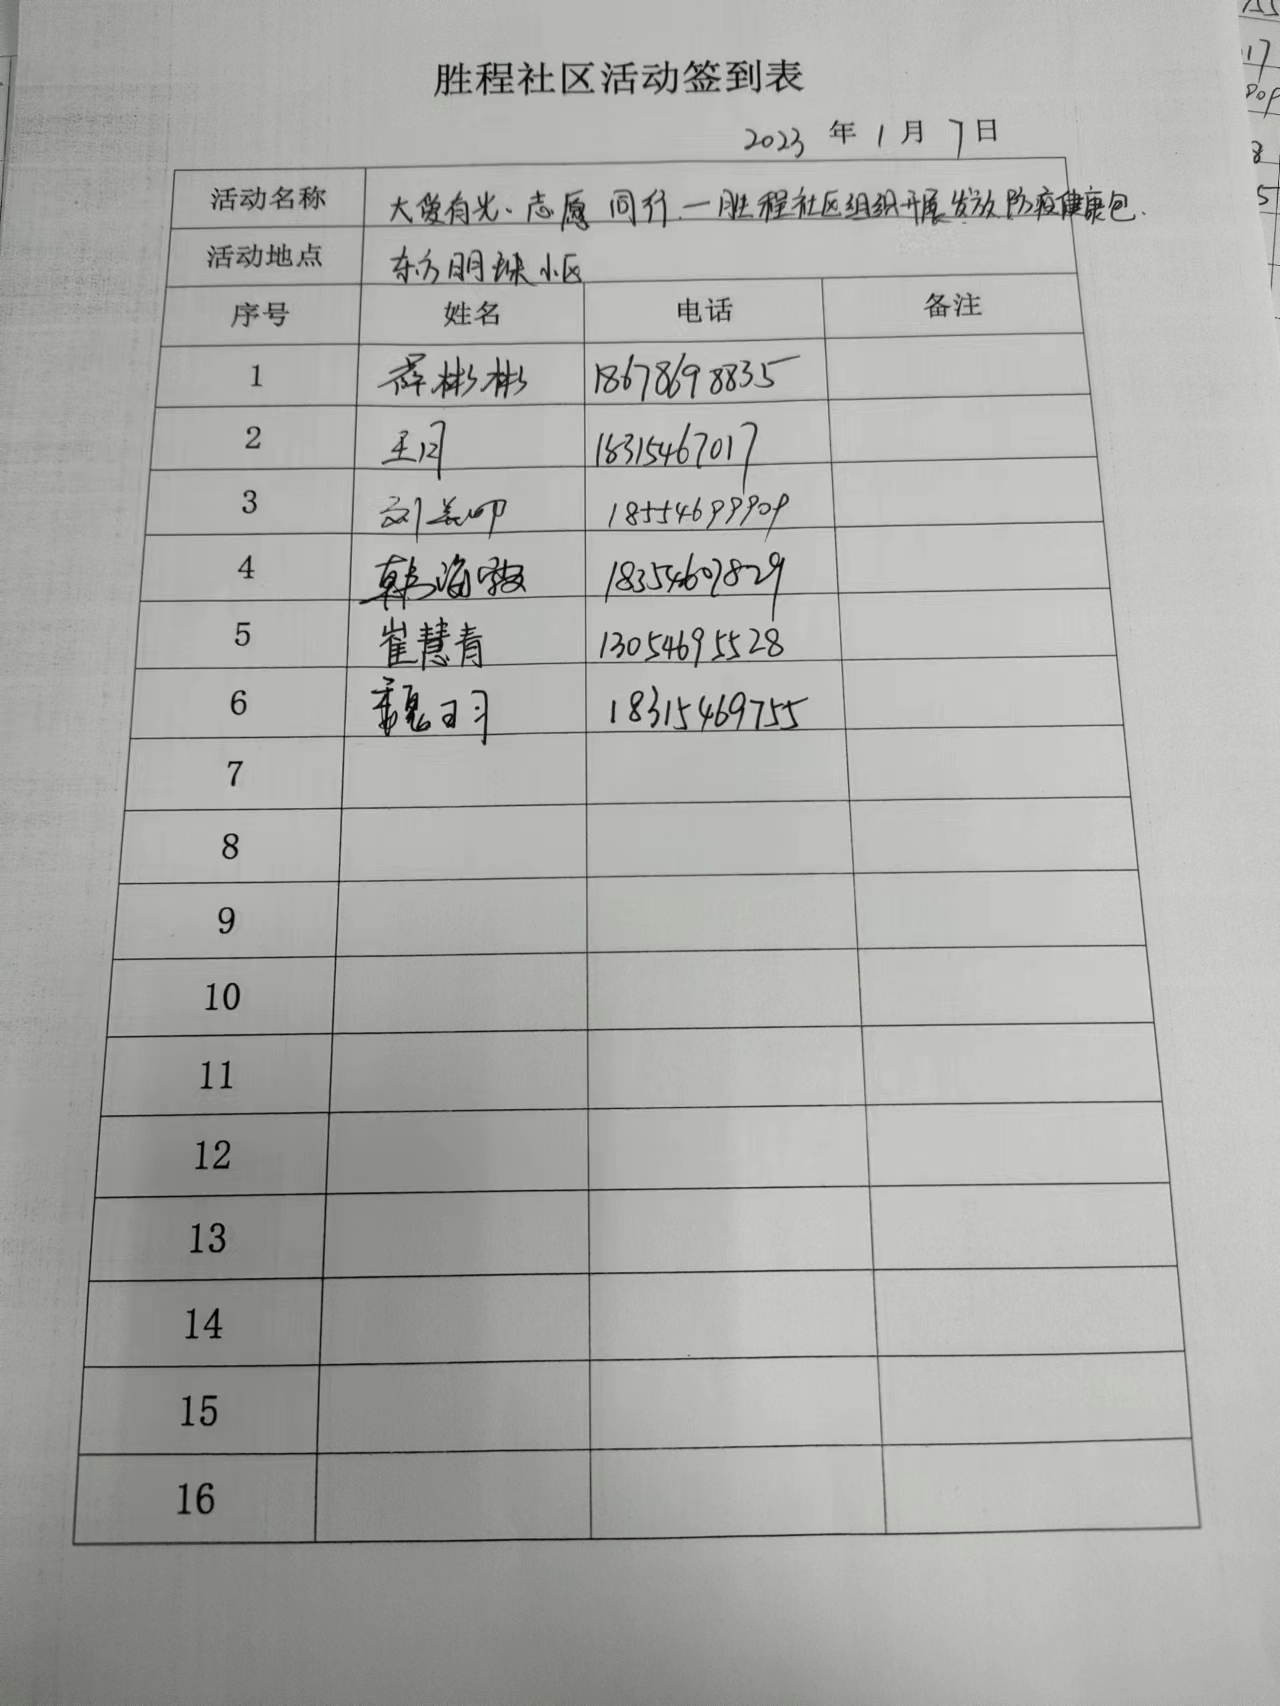 胜程社区活动签到表
2023 年 1 月 7 日
活动名称 大爱有光、志愿同行 一胜程社区组织开展发放防疫健康包.
活动地点 东方明珠小区
序号 姓名 电话 备注
1 薛彬彬 18678698835
2 王月 18315467017
3 刘美 18554699909
4 韩海敏 18354607829
5 崔慧青 13054695528
6 魏 18315469755
7
8
9
10
11
12
13
14
15
16